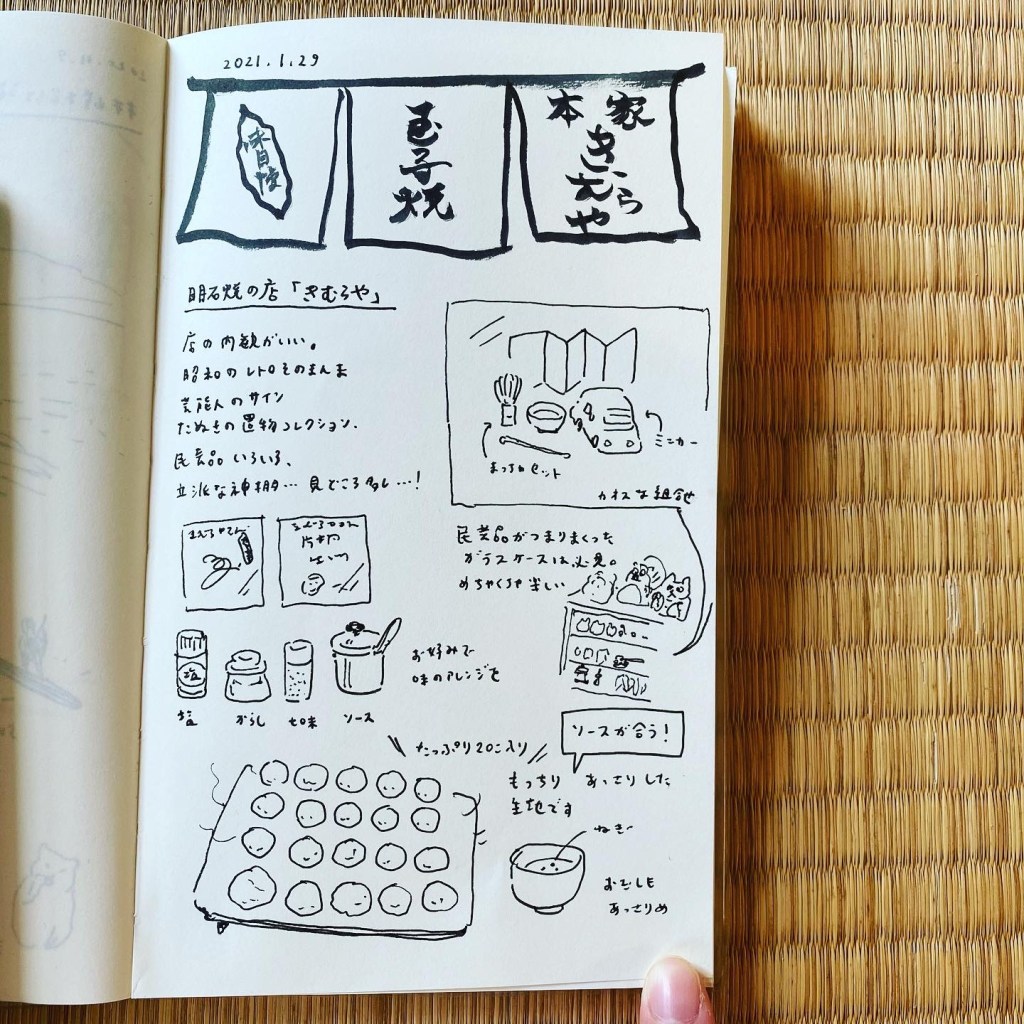 2021.1.29
本家
きむらや
玉子焼
味自慢
明石焼の店「きむらや」
店の内観がいい。
昭和のレトロそのまんま
芸能人のサイン
たぬきの置物コレクション、
民芸品いろいろ、
立派な神棚… 見どころ多し…!
ミニカー
まっ茶セット
カオスな組合せ
民芸品がつまりまくった
ガラスケースは必見。
めちゃくちゃ楽しい
塩
お好みで
味のアレンジを
塩
からし
七味
ソース
ソースが合う!
たっぷり20こ入り
もっちり あっさりした
生地です
ねぎ
おだしも
あっさりめ